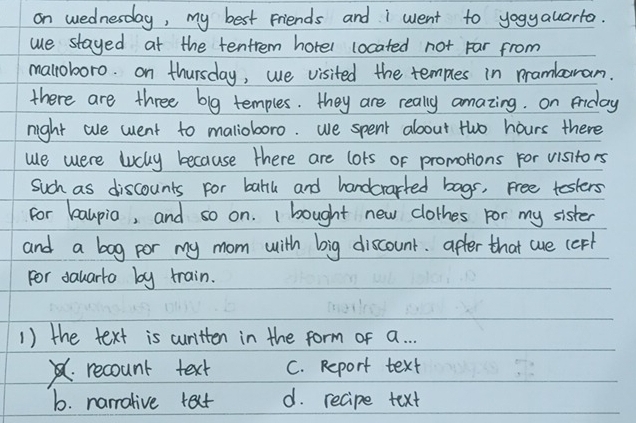 on wednesday, my best Friends and i went to yogyakarta.
we stayed at the tentrem hotel located not far from
malioboro. on thursday, we visited the temples in Prambanan.
there are three big temples. they are really amazing. on friday
night we went to malioboro. we spent about two hours there
we were lucky because there are lots of promotions for visitors
such as discounts for batik and handcrafted bags, Free testers
for bakpia, and so on. I bought new clothes for my sister
and a bag for my mom with big discount. after that we left
for Jakarta by train.
1) the text is written in the form of a...
a. recount text c. Report text
b. narrative text d. recipe text